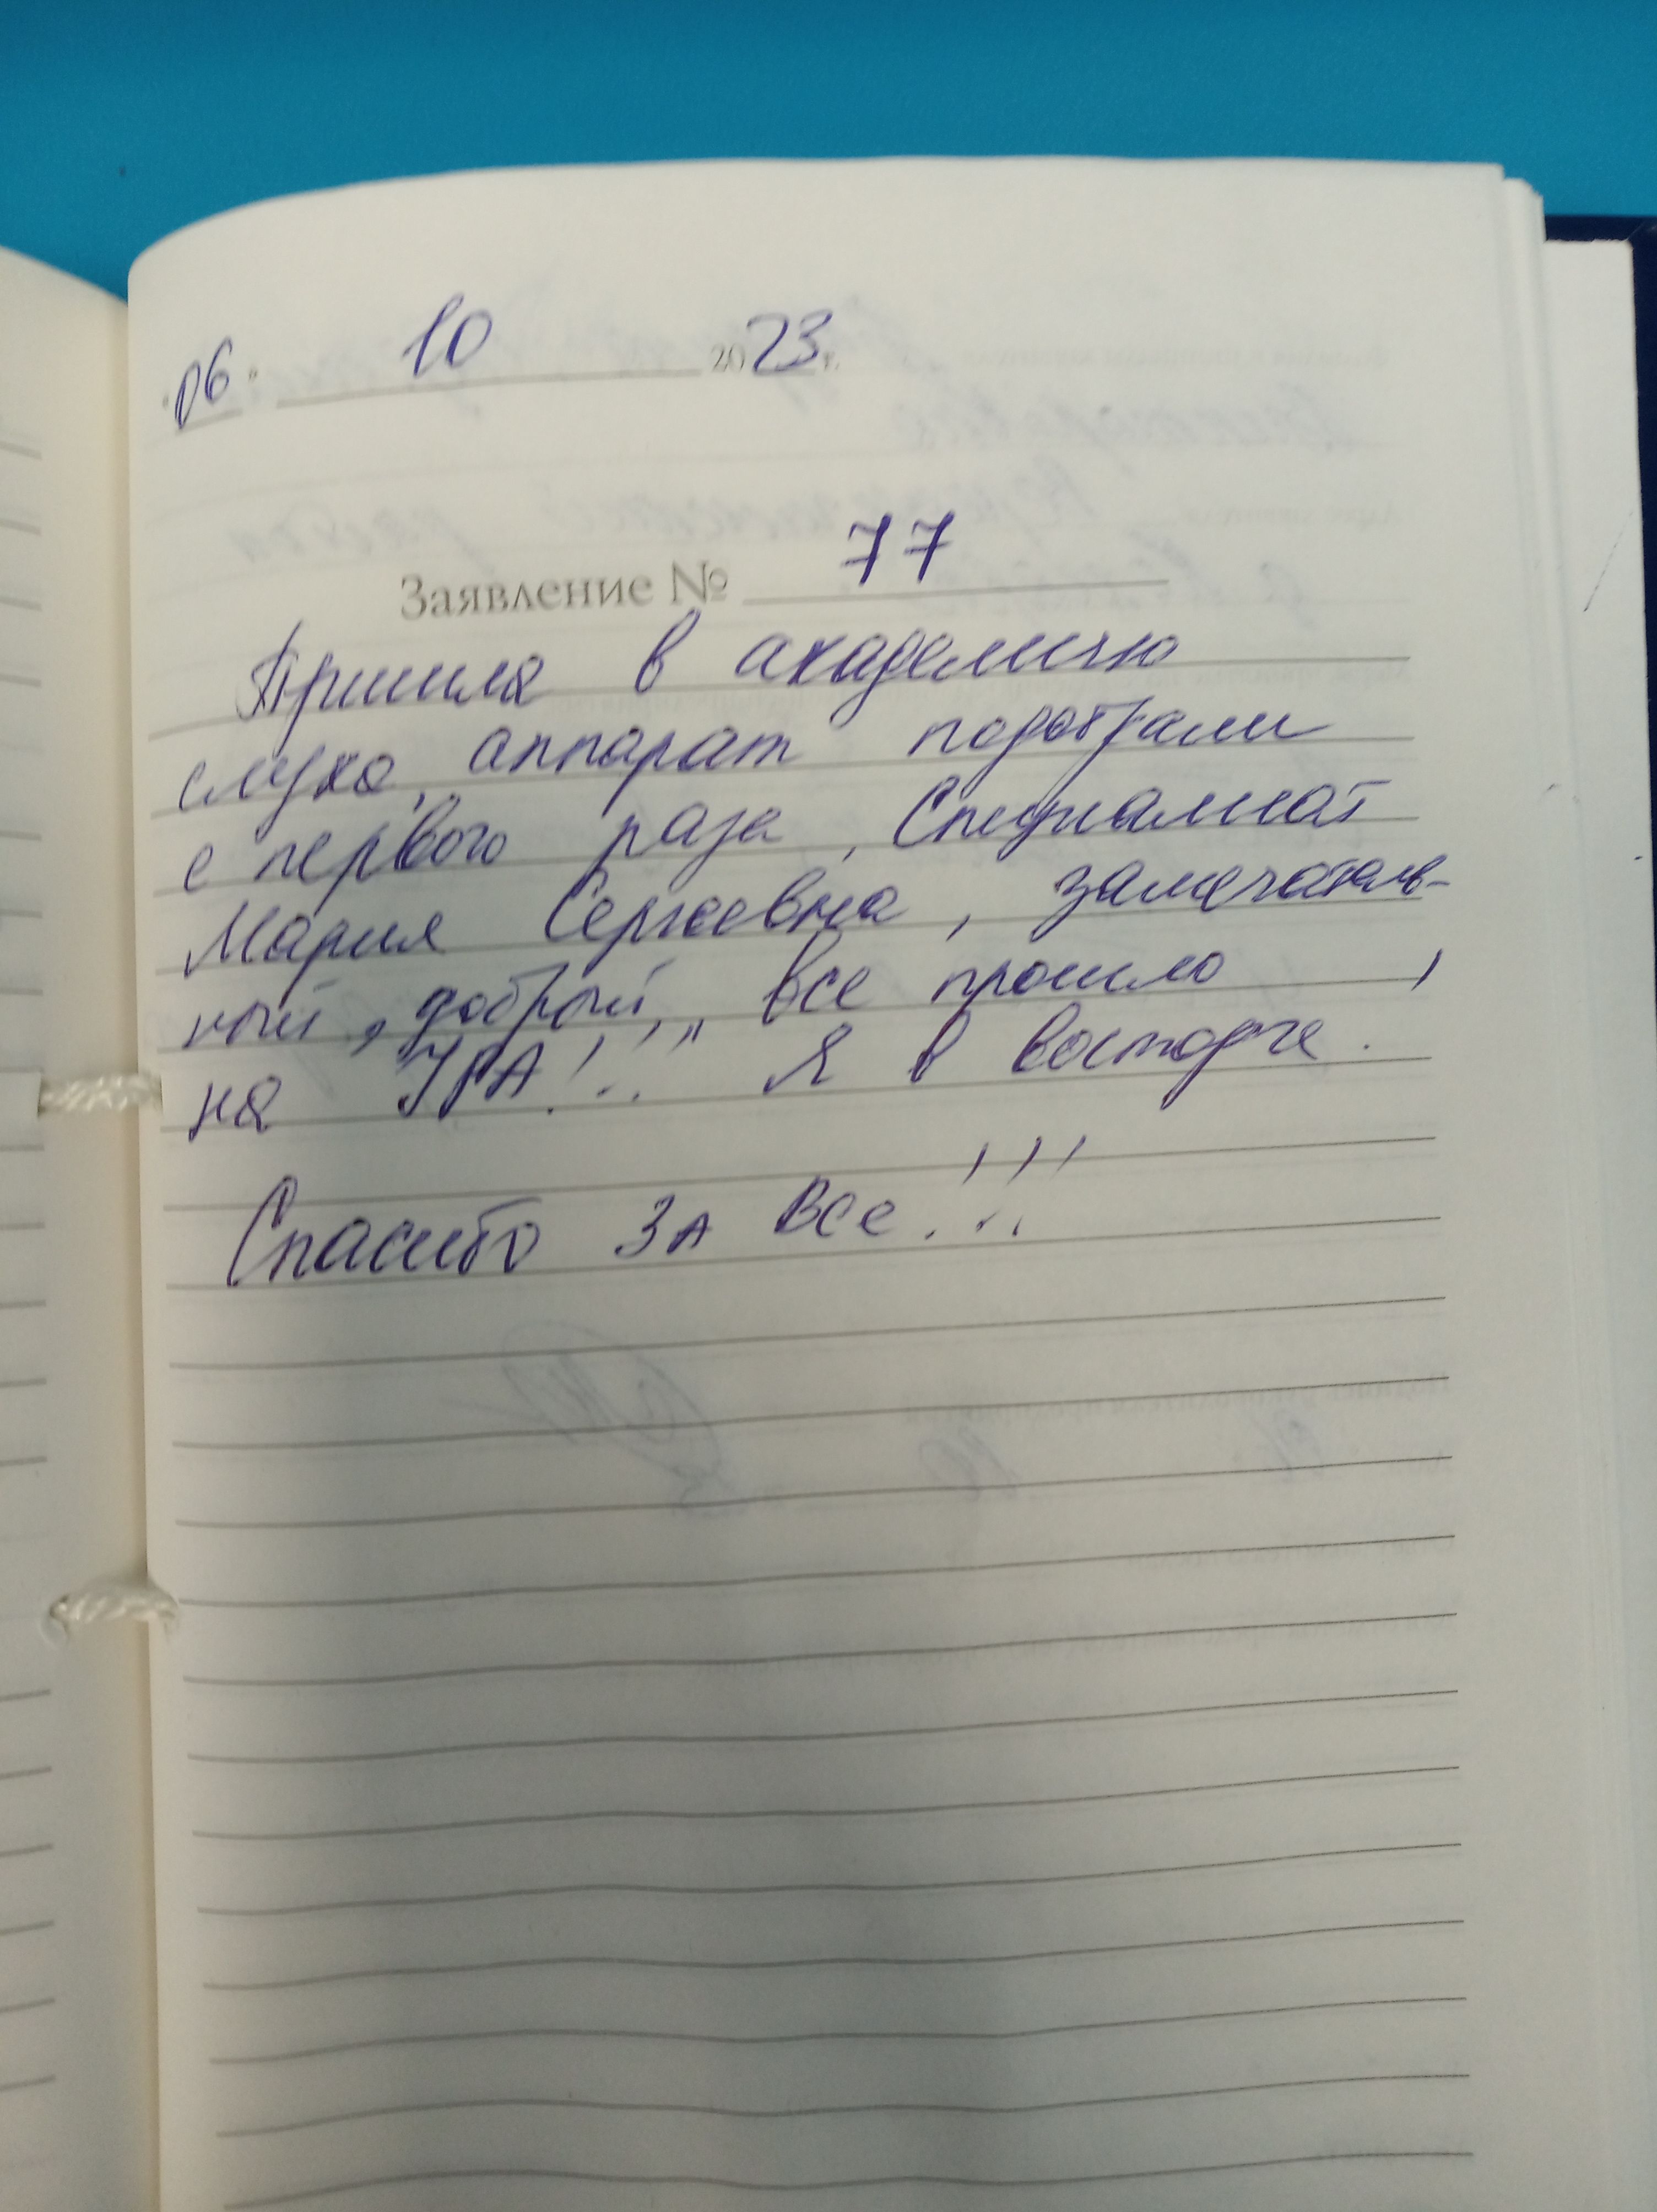 "06" 10 2023 г.
Заявление № 77
Пришла в академию
слуха, аппарат подобрали
с первого раза, Специалист
Мария Сергеевна, замечатель-
ный, добрый, все прошло
на „УРА!!!" Я в восторге.
Спасибо за все!!!